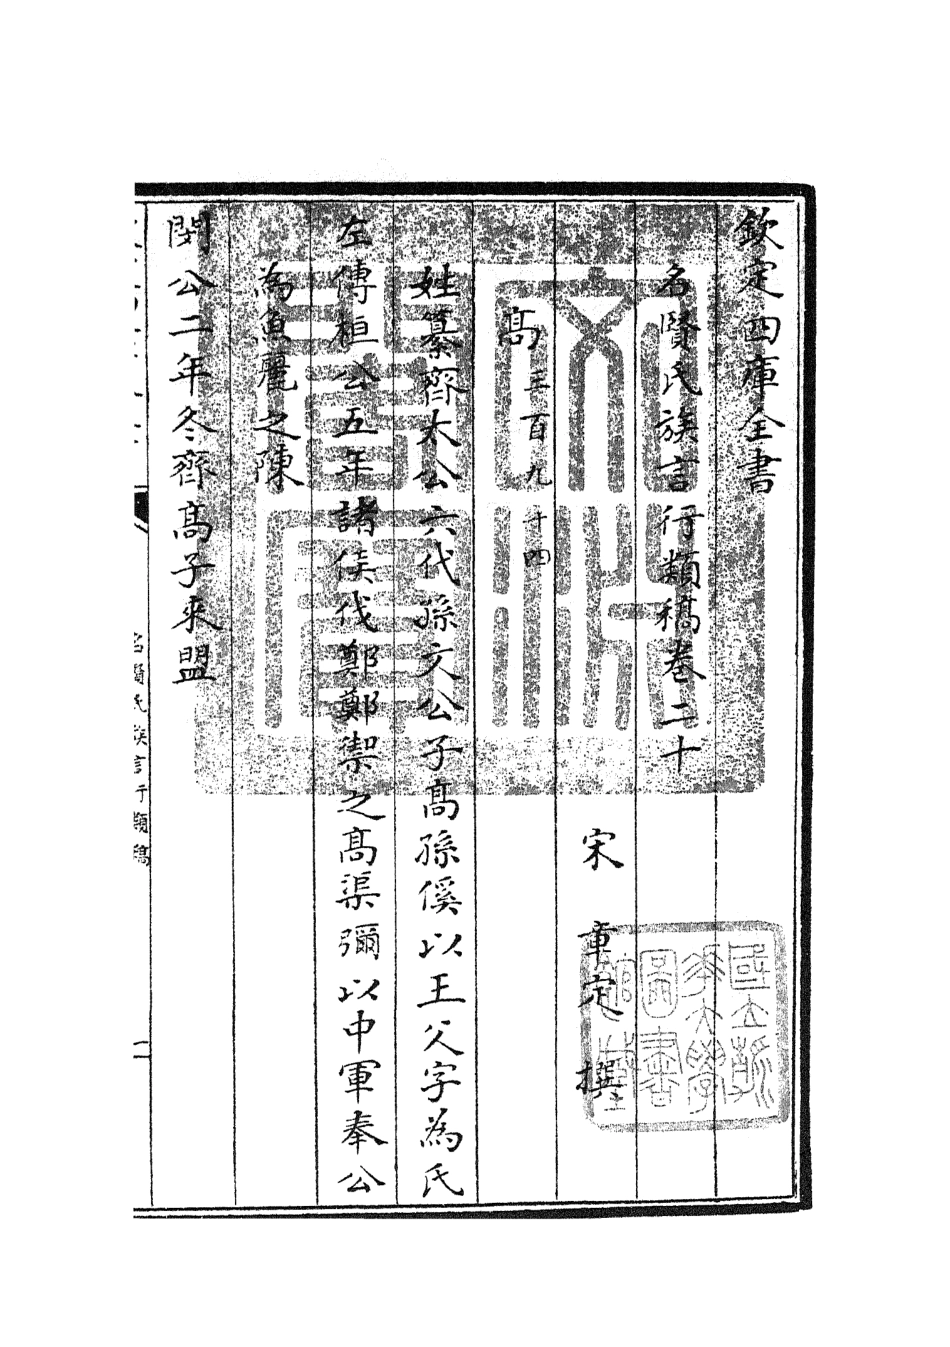 欽定四庫全書
名賢氏族言行類稿卷二十
宋 章定 撰
髙 三百九十四
姓纂齊太公六代孫文公子髙孫傒以王父字為氏
左傳桓公五年諸侯伐鄭鄭禦之髙渠彌以中軍奉公
為魚麗之陳
閔公二年冬齊髙子來盟
名賢氏族言行類稿
一
文淵閣寶
國立浙江大學圖書館藏